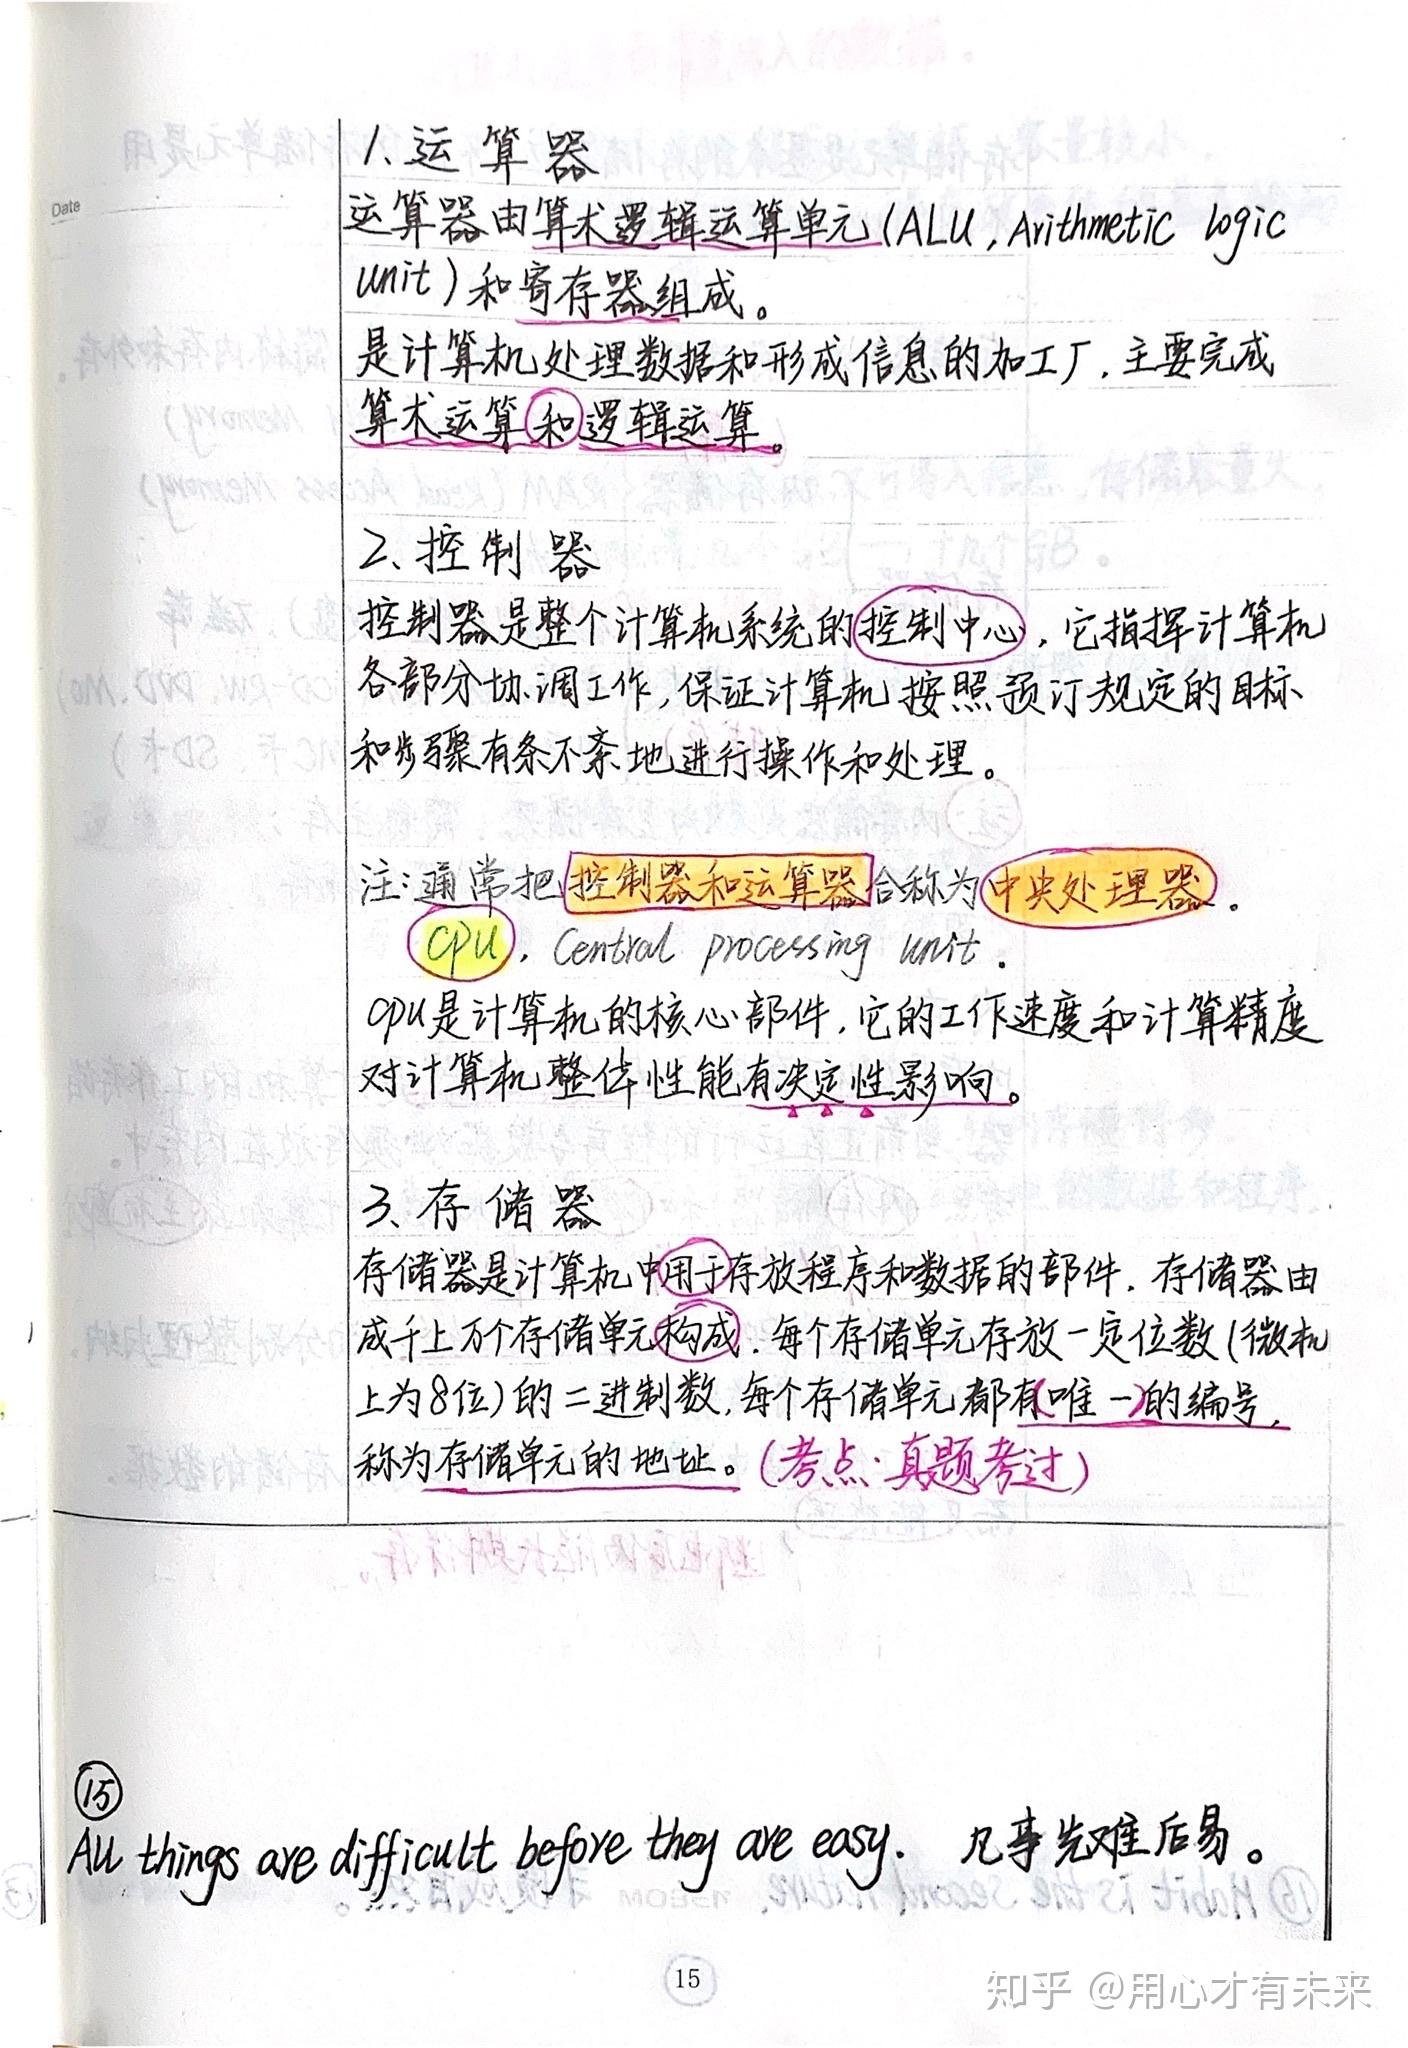 Date
1、运算器
运算器由算术逻辑运算单元(ALU,Arithmetic Logic
unit)和寄存器组成。
是计算机处理数据和形成信息的加工厂,主要完成
算术运算和逻辑运算。
2、控制器
控制器是整个计算机系统的控制中心,它指挥计算机
各部分协调工作,保证计算机按照预订规定的目标
和步骤有条不紊地进行操作和处理。
注:通常把控制器和运算器合称为中央处理器.
CPU, Central processing unit.
CPU是计算机的核心部件,它的工作速度和计算精度
对计算机整体性能有决定性影响。
3、存储器
存储器是计算机中用于存放程序和数据的部件.存储器由
成千上万个存储单元构成.每个存储单元存放一定位数(微机
上为8位)的二进制数,每个存储单元都有(唯一)的编号,
称为存储单元的地址。(考点:真题考过)
⑮
All things are difficult before they are easy. 凡事先难后易。
15
知乎 @用心才有未来